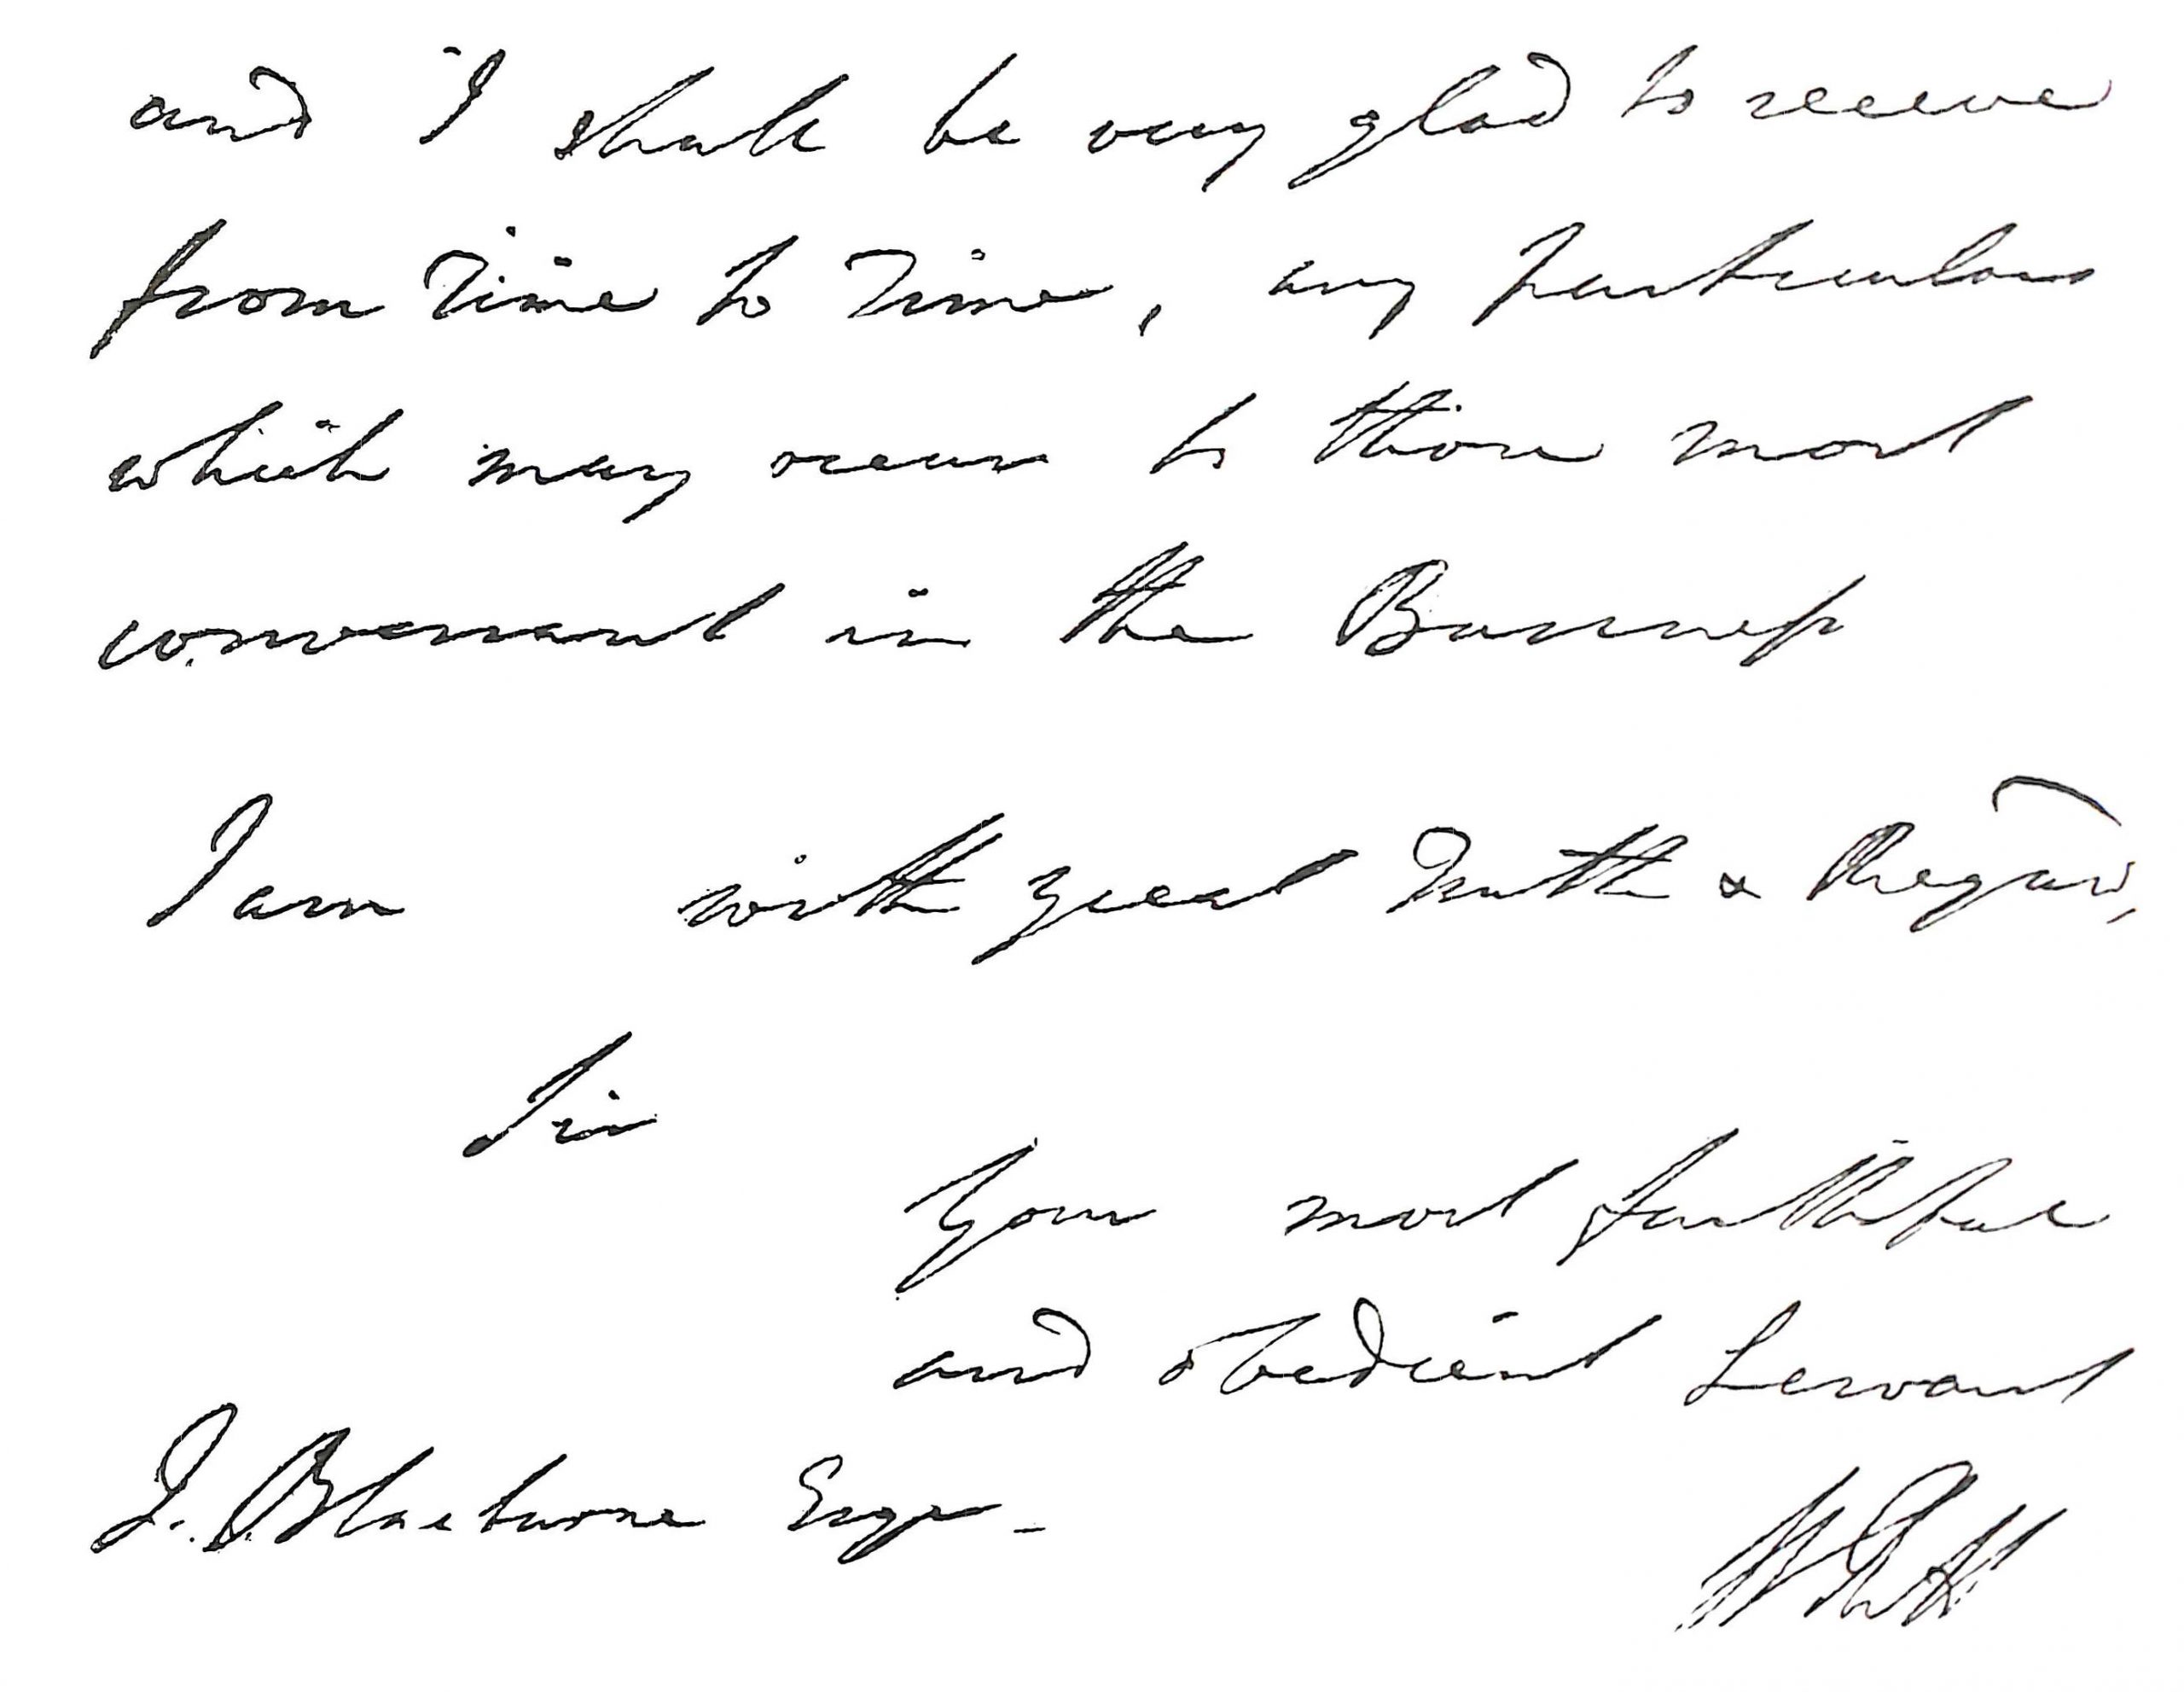 and I shall be very glad to receive
from Time to Time, any particulars
which may occur to those most
conversant in the Business
I am with great Truth & Regard,
Sir
Your most faithful
and obedient Servant
J. Blackburne Esqr -
W Pitt